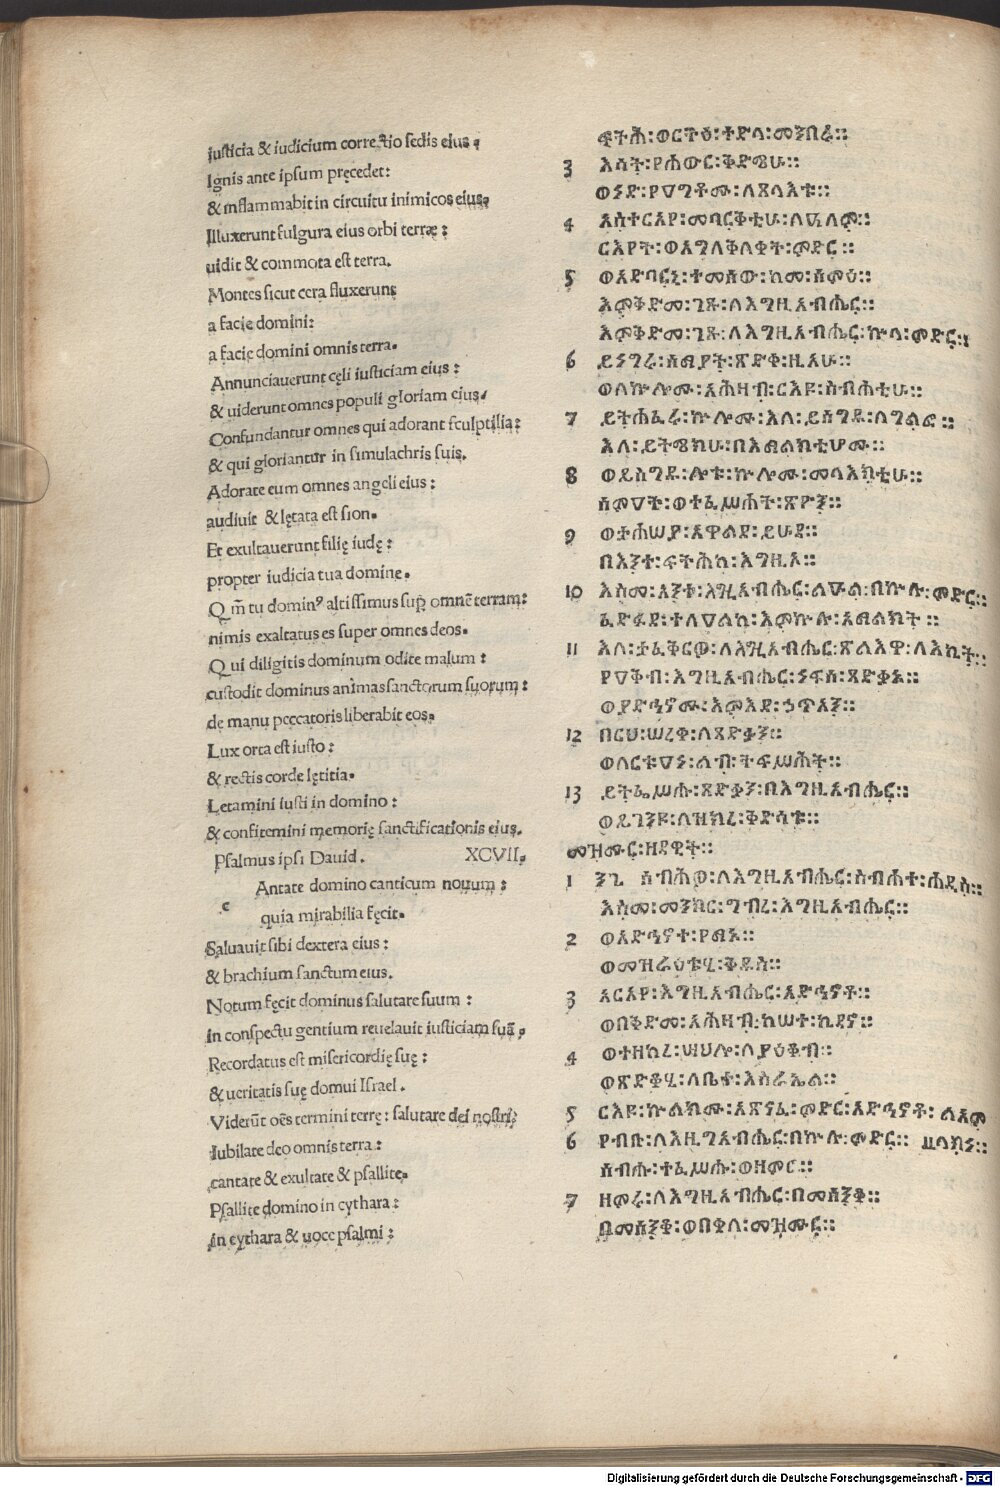 iusticia & iudicium correctio sedis eius :
Ignis ante ipsum pręcedet:
& inflammabit in circuitu inimicos eius.
Illuxerunt fulgura eius orbi terræ :
uidit & commota est terra.
Montes sicut cera fluxerunt
a facie domini:
a facie domini omnis terra.
Annunciauerunt cęli iusticiam eius :
& uiderunt omnes populi gloriam eius.
Confundantur omnes qui adorant sculptilia:
& qui gloriantur in simulachris suis.
Adorate eum omnes angeli eius :
audiuit & lętata est sion.
Et exultauerunt filię iudę :
propter iudicia tua domine.
Q m̄ tu domin⁹ altissimus sup̱ omnē terram:
nimis exaltatus es super omnes deos.
Q ui diligitis dominum odite malum :
custodit dominus animas sanctorum suorum :
de manu peccatoris liberabit eos.
Lux orta est iusto :
& rectis corde lętitia.
Letamini iusti in domino :
& confitemini memorię sanctificationis eius.
Psalmus ipsi Dauid . XCVII.
c Antate domino canticum nouum :
quia mirabilia fęcit.
Saluauit sibi dextera eius :
& brachium sanctum eius.
Notum fęcit dominus salutare suum :
in conspectu gentium reuelauit iusticiam suā .
Recordatus est misericordię suę :
& ueritatis suę domui Israel .
Viderūt oēs termini terrę : salutare dei nostri:
Iubilate deo omnis terra :
cantate & exultate & psallite.
Psallite domino in cythara :
in cythara & uoce psalmi :
ፍትሕ:ወርትዕ:ተድላ:መንበሩ።
3 እሳት:የሐውር:ቅድሜሁ።
ወነድ:የዐግቶሙ:ለጸላእቱ።
4 አስተርአየ:መባርቅቲሁ:ለዓለም።
ርእየት:ወአግለቅለቀት:ምድር።
5 ወአድባርኒ:ተመሰው:ከመ:ሰምዕ።
እምቅድመ:ገጹ:ለእግዚአብሔር።
እምቅድመ:ገጹ:ለእግዚአብሔር:ኵላ:ምድር።
6 ይነግራ:ሰማያት:ጽድቀ:ዚአሁ።
ወለኵሎሙ:አሕዛብ:ርእዩ:ስብሐቲሁ።
7 ይትሐፈሩ:ኵሎሙ:እለ:ይሰግዱ:ለግልፎ።
እለ:ይትሜክሁ:በአማልክቲሆሙ።
8 ወይሰግዱ:ሎቱ:ኵሎሙ:መላእክቲሁ።
ሰምዐት:ወተፈሥሐት:ጽዮን።
9 ወተሐሥያ:አዋልደ:ይሁዳ።
በእንተ:ፍትሕከ:እግዚኦ።
10 እስመ:አንተ:እግዚአብሔር:ልዑል:በኵሉ:ምድር።
ፈድፋደ:ተለዐልከ:እምኵሉ:አማልክት።
11 እለ:ታፈቅርዎ:ለእግዚአብሔር:ጽልእዋ:ለእኪት።
የዐቅብ:እግዚአብሔር:ነፍሰ:ጻድቃኑ።
ወያድኅኖሙ:እምእደ:ኃጥአን።
12 በርሀ:ሠረቀ:ለጻድቃን።
ወለርቱዐነ:ልብ:ትፍሥሕት።
13 ይትፌሥሑ:ጻድቃን:በእግዚአብሔር።
ወይገንዩ:ለዝክረ:ቅድሳቱ።
መዝሙር:ዘዳዊት።
1 ፺፯ ሰብሕዎ:ለእግዚአብሔር:ስብሐተ:ሐዲስ።
እስመ:መንክር:ገብረ:እግዚአብሔር።
2 ወአድኅኖተ:የማኑ።
ወመዝራዕቱኒ:ቅዱስ።
3 አርአየ:እግዚአብሔር:አድኅኖቶ።
ወበቅድመ:አሕዛብ:ከሠተ:ኪዳኖ።
4 ወተዘከረ:ሣህሎ:ለያዕቆብ።
ወጽድቆኒ:ለቤተ:እስራኤል።
5 ርእዩ:ኵልክሙ:አጽናፈ:ምድር:አድኅኖቶ:ለአም
6 የብቡ:ለእግዚአብሔር:በኵሉ:ምድር። ምላክነ።
ሰብሑ:ተፈሥሑ:ወዘምሩ።
7 ዘምሩ:ለእግዚአብሔር:በመሰንቆ።
በመሰንቆ:ወበቃለ:መዝሙር።
Digitalisierung gefördert durch die Deutsche Forschungsgemeinschaft - DFG